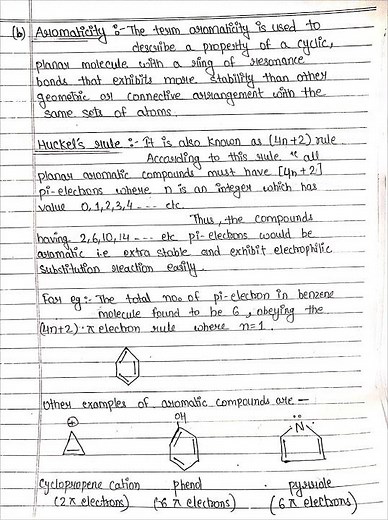 (b) Aromaticity :- The term aromaticity is used to
describe a property of a cyclic,
planar molecule with a ring of resonance
bonds that exhibits more stability than other
geometric or connective arrangement with the
same sets of atoms.
Huckel's rule :- It is also known as (4n+2) rule.
According to this rule "all
planar aromatic compounds must have [4n+2]
pi-electrons where n is an integer which has
value 0,1,2,3,4 ---- etc.
Thus, the compounds
having 2,6,10,14 ---- etc pi-electrons would be
aromatic i.e extra stable and exhibit electrophilic
substitution reaction easily.
For eg:- The total no. of pi-electron in benzene
molecule found to be 6, obeying the
(4n+2) π electron rule where n=1.
Other examples of aromatic compounds are —
⊕ OH
N
Cyclopropene cation phenol pyrrole
(2π electrons) (6π electrons) (6π electrons)